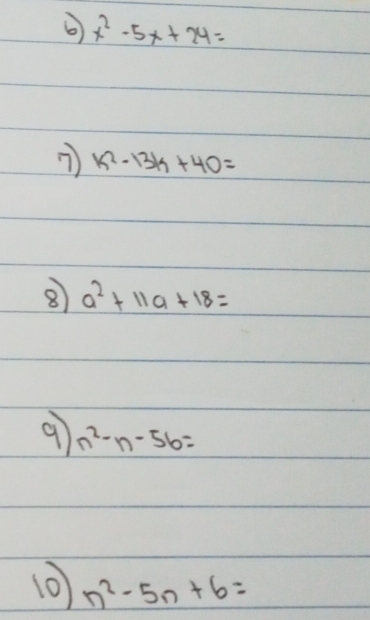 6) x² - 5x + 24 =
7) k² - 13k + 40 =
8) a² + 11a + 18 =
9) n² - n - 56 =
10) n² - 5n + 6 =